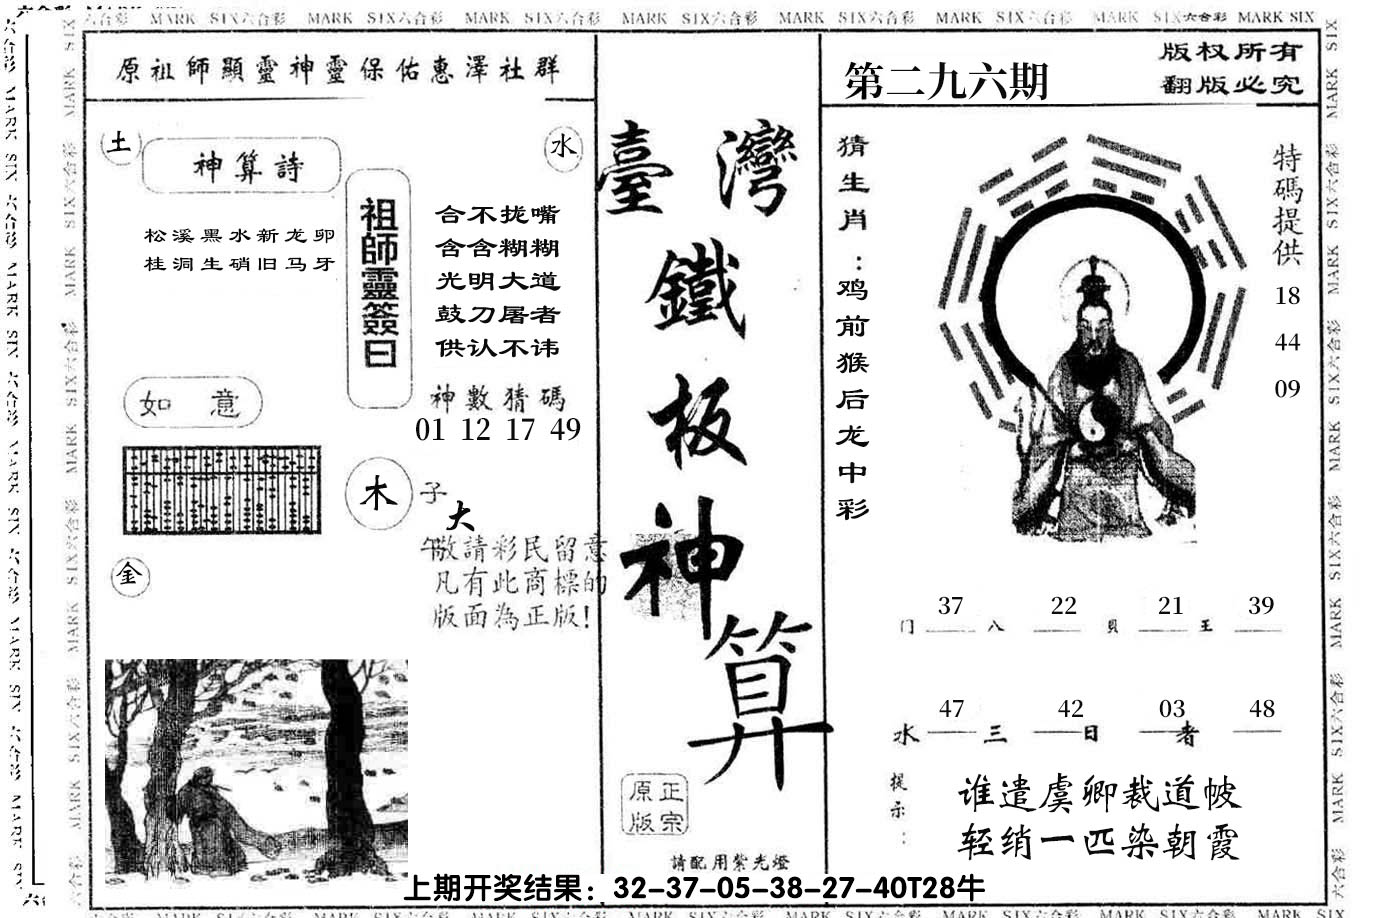 MARK SIX六合彩 MARK SIX六合彩 MARK SIX六合彩 MARK SIX六合彩 MARK SIX六合彩 MARK SIX六合彩 MARK SIX六合彩 MARK SIX
原祖師顯靈神靈保佑惠澤社群
土
神算詩
水
松溪黑水新龙卵
桂洞生硝旧马牙
祖師靈簽曰
合不拢嘴
含含糊糊
光明大道
鼓刀屠者
供认不讳
神數猜碼
01 12 17 49
如意
木
子
大
午
敬請彩民留意
凡有此商標的
版面為正版!
金
臺灣
鐵
板
神
算
正宗
原版
請配用紫光燈
第二九六期
版权所有
翻版必究
猜生肖：鸡前猴后龙中彩
特碼提供
18
44
09
37 22 21 39
门 八 貝 王
47 42 03 48
水 三 日 者
提示：
谁遣虞卿裁道帔
轻绡一匹染朝霞
上期开奖结果：32-37-05-38-27-40T28牛